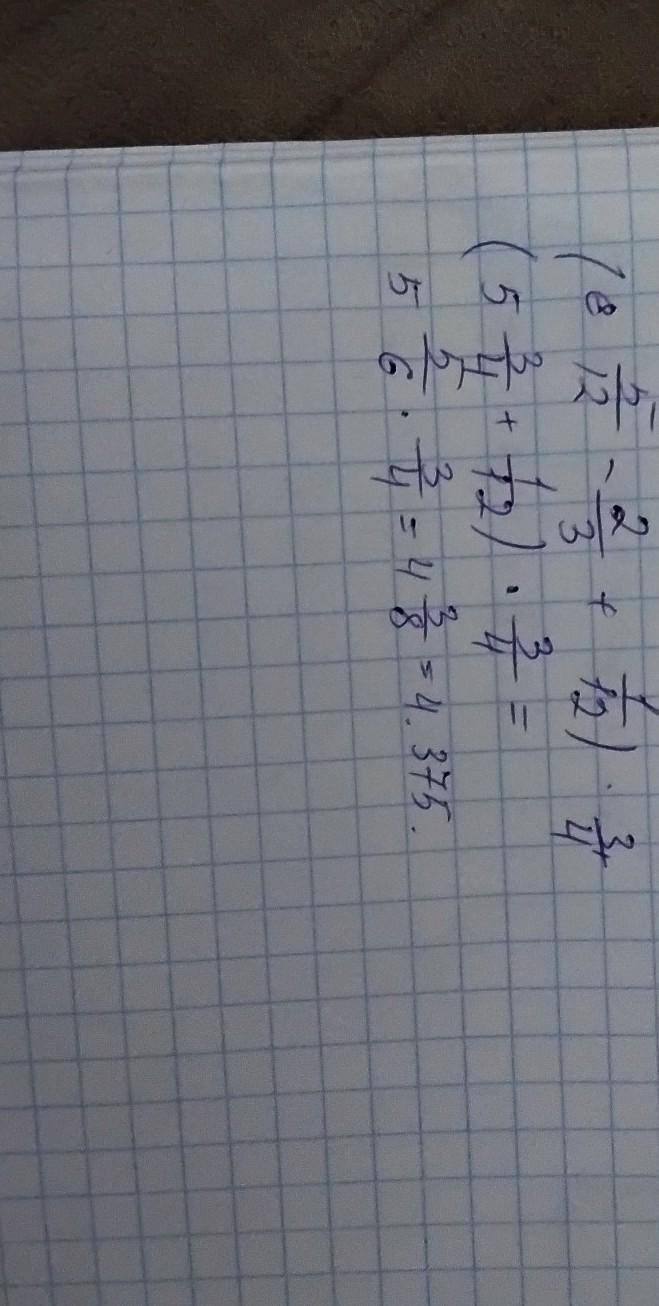 (8 5/12 - 2/3 + 1/12) · 3/4
(5 3/4 + 1/12) · 3/4 =
5 5/6 · 3/4 = 4 3/8 = 4.375.